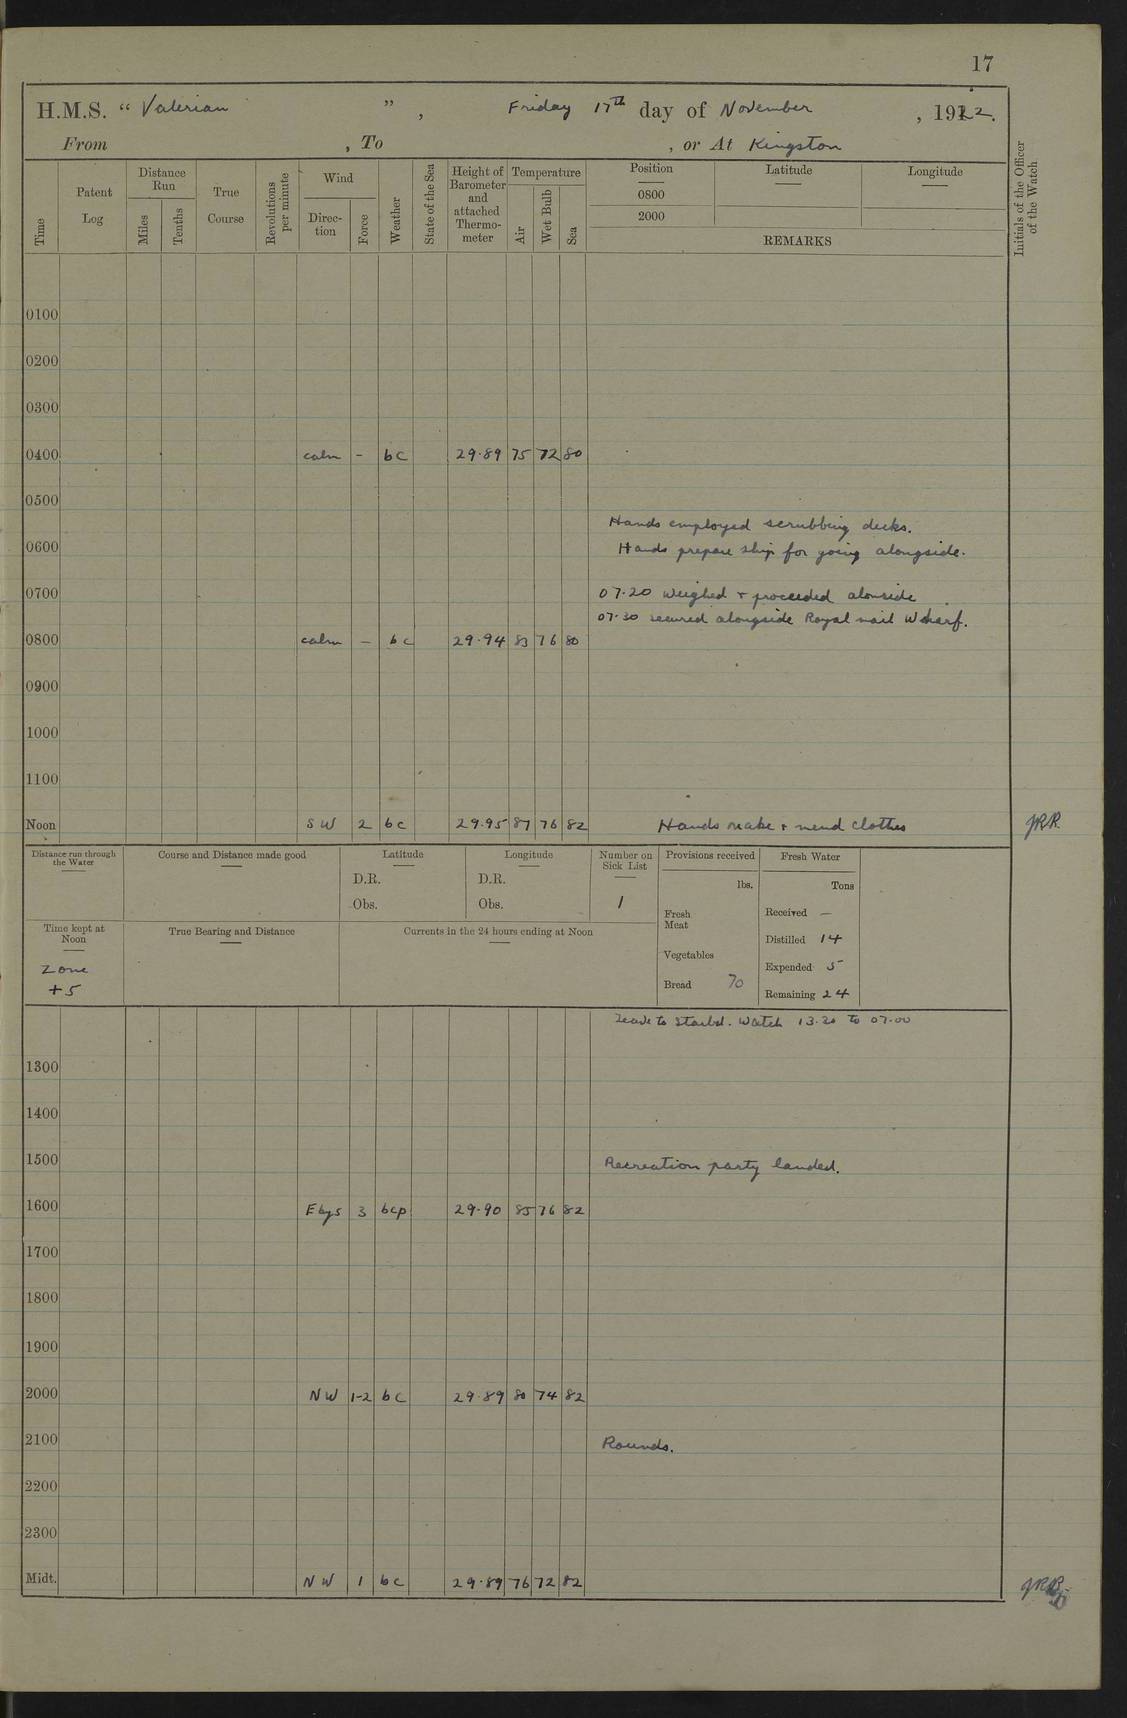 17
H.M.S. “ Valerian ” , Friday 17th day of November , 1922.
From , To , or At Kingston
Time
Patent Log
Distance Run
Miles
Tenths
True Course
Revolutions per minute
Wind
Direc-tion
Force
Weather
State of the Sea
Height of Barometer and attached Thermo-meter
Temperature
Air
Wet Bulb
Sea
Position
0800
2000
Latitude
Longitude
REMARKS
Initials of the Officer of the Watch
0100
0200
0300
0400 calm - bc 29.89 75 72 80
0500
Hands employed scrubbing decks.
0600 Hands prepare ship for going alongside.
0700 07.20 weighed + proceeded alonside
07.30 secured alongside Royal mail Wharf.
0800 calm - bc 29.94 83 76 80
0900
1000
1100
Noon SW 2 bc 29.95 87 76 82 Hands make + mend clothes JRR.
Distance run through the Water
Course and Distance made good
Latitude
D.R.
Obs.
Longitude
D.R.
Obs.
Number on Sick List
1
Provisions received
lbs.
Fresh Meat
Vegetables
Bread 70
Fresh Water
Tons
Received —
Distilled 14
Expended 5
Remaining 24
Time kept at Noon
Zone
+5
True Bearing and Distance
Currents in the 24 hours ending at Noon
Leave to Starbd. Watch 13.20 to 07.00
1300
1400
1500 Recreation party landed.
1600 Ebys 3 bcp 29.90 85 76 82
1700
1800
1900
2000 NW 1-2 bc 29.89 80 74 82
2100 Rounds.
2200
2300
Midt. NW 1 bc 29.89 76 72 82